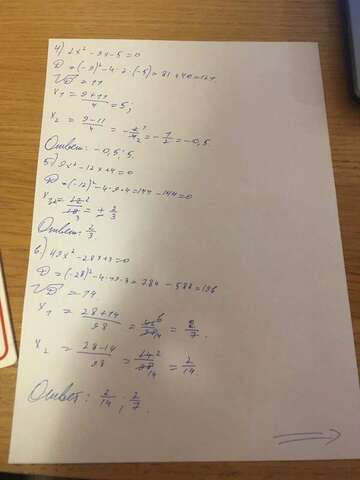 4) 2x² - 9x - 5 = 0
D = (-9)² - 4·2·(-5) = 81 + 40 = 121
√D = 11
x1 = (9+11)/4 = 5;
x2 = (9-11)/4 = -2/4 = -1/2 = -0,5
Ответ: -0,5; 5.
5) 9x² - 12x + 4 = 0
D = (-12)² - 4·9·4 = 144 - 144 = 0
= 2/3
Ответ: 2/3
6) 49x² - 28x + 3 = 0
D = (-28)² - 4·49·3 = 784 - 588 = 196
√D = 14
x1 = (28+14)/98 = = 
x2 = (28-14)/98 = = 2/14
Ответ: 2/14;